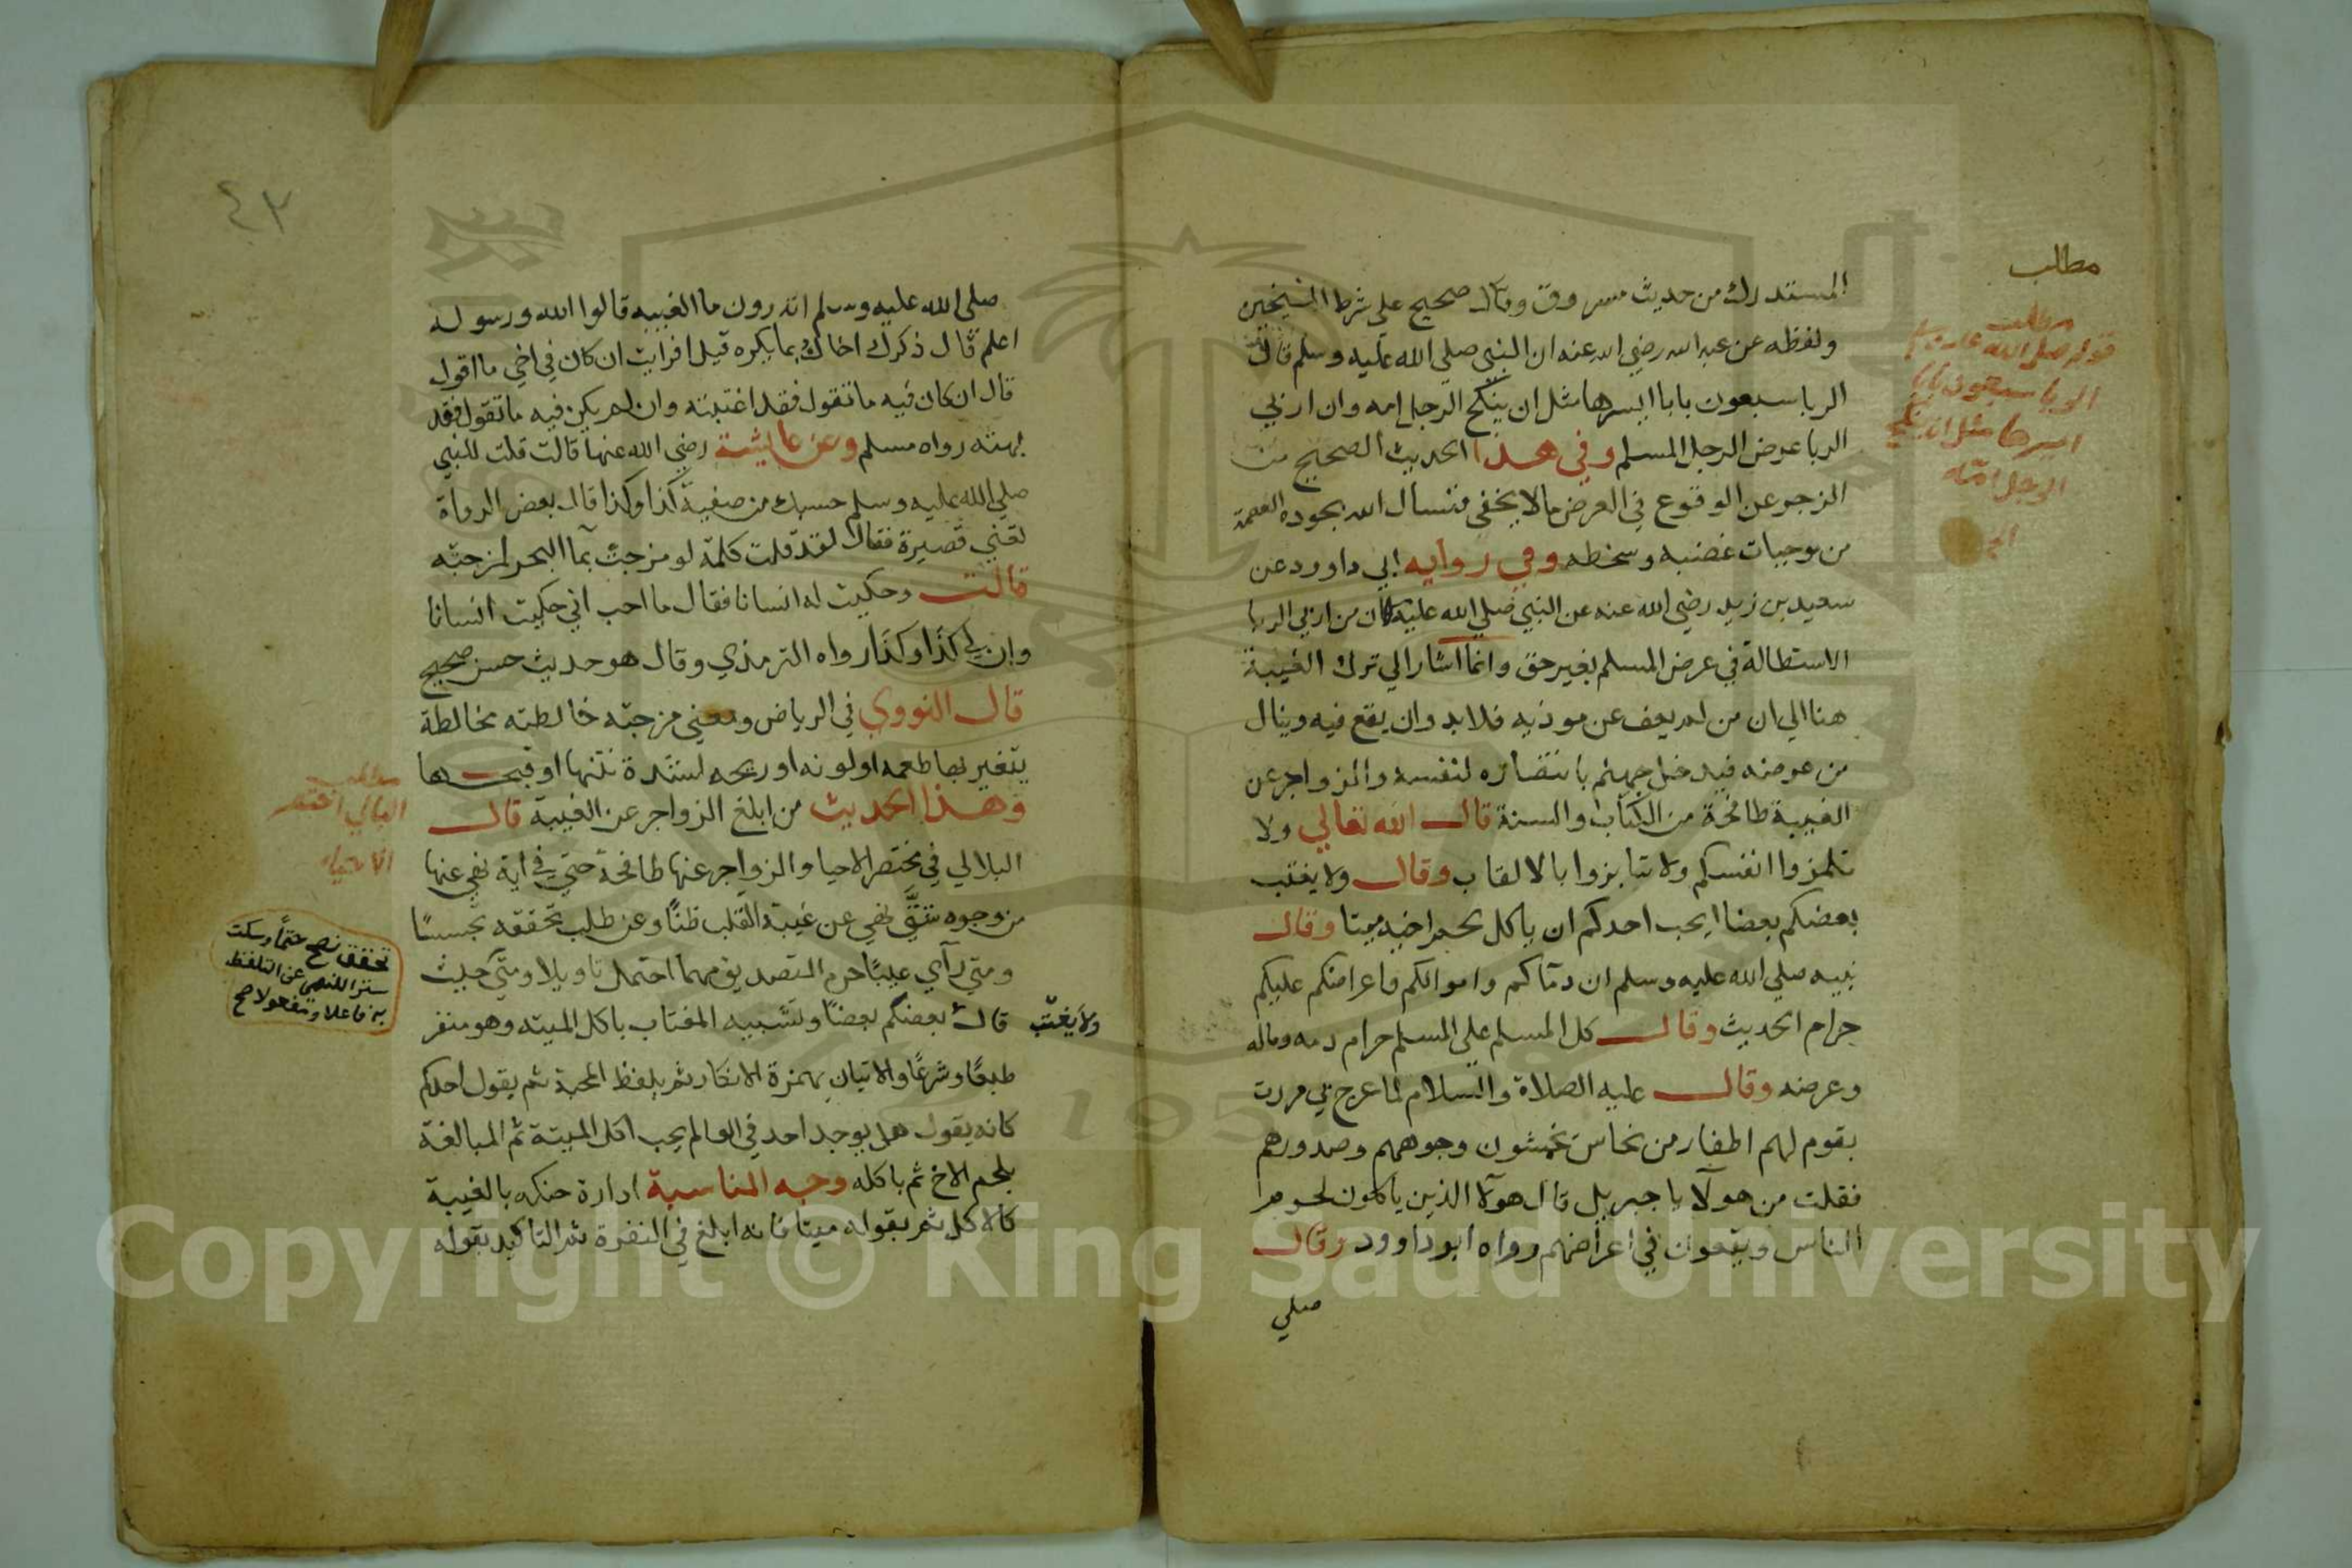 مطلب
مطلب
قوله صلى الله عليه وسلم
الربا سبعون بابا
ايسرها مثل ان ينكح
الرجل امه
الخ
المستدرك من حديث مسروق وقال صحيح على شرط الشيخين
ولفظه عن عبد الله رضي الله عنه ان النبي صلي الله عليه وسلم قال
الربا سبعون بابا ايسرها مثل ان ينكح الرجل امه وان اربي
الربا عرض الرجل المسلم وفي هذا الحديث الصحيح من
الزجر عن الوقوع في العرض ما لا يخفي فنسال الله بجوده العصمة
من موجبات غضبه وسخطه وفي روايه ابي داوود عن
سعيد بن زيد رضي الله عنه عن النبي صلي الله عليه ان من اربي الربا
الاستطالة في عرض المسلم بغير حق وانما اشار الي ترك الغيبة
هنا الي ان من لم يعف عن موذيه فلابد وان يقع فيه وينال
من عرضه فيدخل جهنم بانتصاره لنفسه والزواجر عن
الغيبة طافحة من الكتاب والسنة قال الله تعالي ولا
تلمزوا انفسكم ولا تنابزوا بالالقاب وقال ولا يغتب
بعضكم بعضا ايحب احدكم ان ياكل لحم اخيه ميتا وقال
نبيه صلي الله عليه وسلم ان دماكم واموالكم واعراضكم عليكم
حرام الحديث وقال كل المسلم علي المسلم حرام دمه وماله
وعرضه وقال عليه الصلاة والسلام لما عرج بي مررت
بقوم لهم اظفار من نحاس يخمشون وجوههم وصدورهم
فقلت من هولآ يا جبريل قال هولآ الذين ياكلون لحوم
الناس ويقعون في اعراضهم رواه ابو داوود وقال
صلي
٤٣
صلي الله عليه وسلم اتدرون ما الغيبه قالوا الله ورسوله
اعلم قال ذكرك اخاك بما يكره قيل افرايت ان كان في اخي ما اقول
قال ان كان فيه ما تقول فقد اغتبته وان لم يكن فيه ما تقول فقد
بهته رواه مسلم وعن عايشة رضي الله عنها قالت قلت للنبي
صلي الله عليه وسلم حسبك من صفية كذا وكذا قال بعض الرواة
تعني قصيرة فقال لقد قلت كلمة لو مزجت بمآ البحر لمزجته
قالت وحكيت له انسانا فقال ما احب اني حكيت انسانا
وان لي كذا وكذا رواه الترمذي وقال هو حديث حسن صحيح
قال النووي في الرياض ومعني مزجته خالطته مخالطة
يتغير بها طعمه او لونه او ريحه لشدة نتنها او قبحها
وهذا الحديث من ابلغ الزواجر عن الغيبة قال
البلالي في مختصر الاحيا والزواجر عنها طافحة حتي في اية نهي عنها
من وجوه شتي نهي عن غيبة القلب ظنا وعن طلب تحققه تجسسا
ومتي رآي عيبا حرم التصديق مهما احتمل تاويلا ومتي
قال بعضكم بعضا وتشبيه المغتاب باكل الميته وهو منفر
طبعا وشرعا والاتيان بهمزة الانكار ثم بلفظ المحبة ثم يقول احدكم
كانه يقول هل يوجد احد في العالم يحب اكل الميتة ثم المبالغة
بلحم الاخ ثم باكله وجه المناسبة ادارة حنكه بالغيبة
كالاكل ثم بقوله ميتا فانه ابلغ في النفرة ثم التاكيد بقوله
مطلب
البلالي اختصر
الاحياء
تحقق نصح حتما وسكت
سترا للنهي عن التلفظ
به فاعلا ومفعولا صح
ولا يغتب
Copyright © King Saud University
195